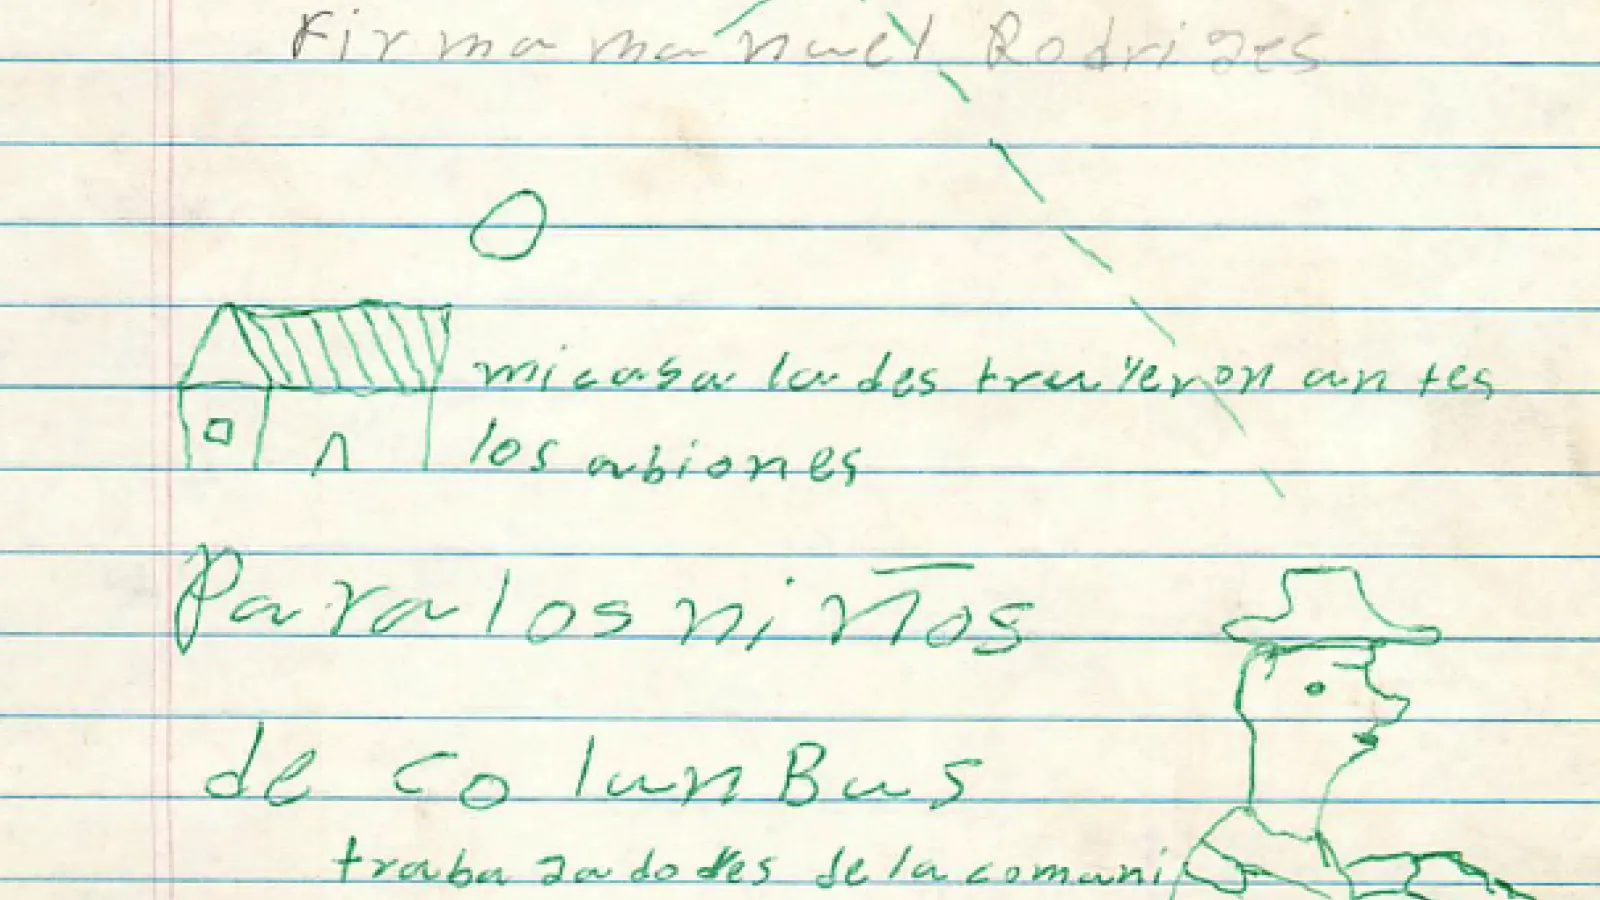 Firma manuel Rodriges
mi casa la des truyeron antes
los abiones
Para los niños
de colunBus
traba gadores de la comuni